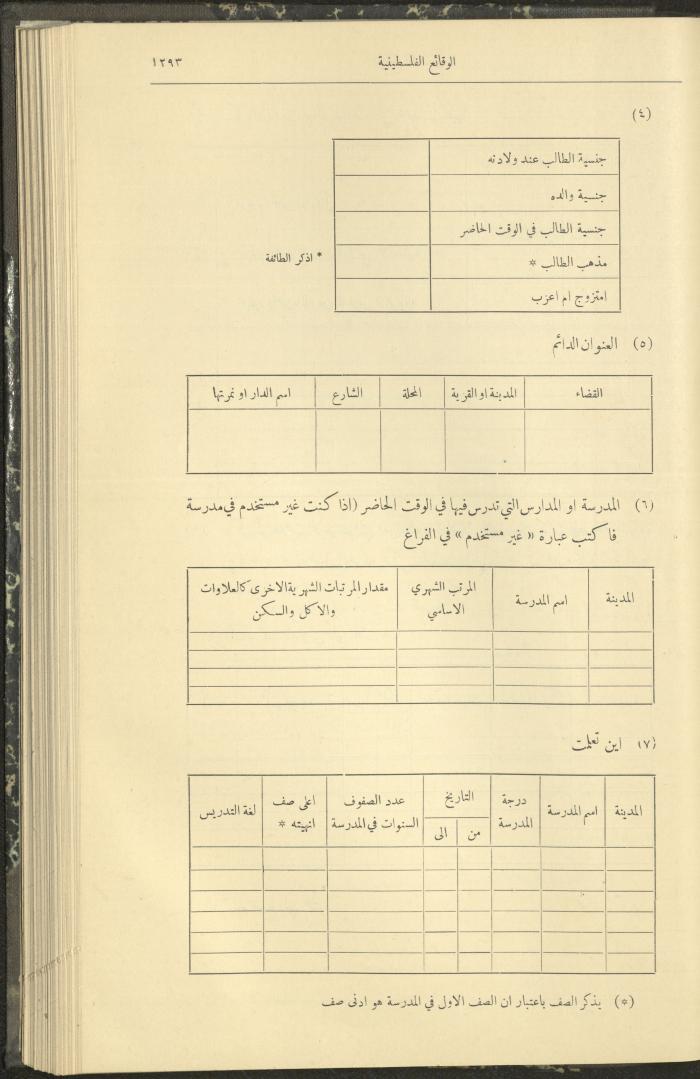 الوقائع الفلسطينية ١٢٩٣
(٤)
جنسية الطالب عند ولادته
جنسية والده
جنسية الطالب في الوقت الحاضر
مذهب الطالب * * اذكر الطائفة
امتزوج ام اعزب
(٥) العنوان الدائم
القضاء المدينة او القرية المحلة الشارع اسم الدار او نمرتها
(٦) المدرسة او المدارس التي تدرس فيها في الوقت الحاضر (اذا كنت غير مستخدم في مدرسة
فاكتب عبارة « غير مستخدم » في الفراغ
المدينة اسم المدرسة المرتب الشهري مقدار المرتبات الشهرية الاخرى كالعلاوات
الاساسي والاكل والسكن
(٧) اين تعلمت
المدينة اسم المدرسة درجة التاريخ عدد الصفوف اعلى صف لغة التدريس
المدرسة من الى السنوات في المدرسة انهيته *
(*) يذكر الصف باعتبار ان الصف الاول في المدرسة هو ادنى صف